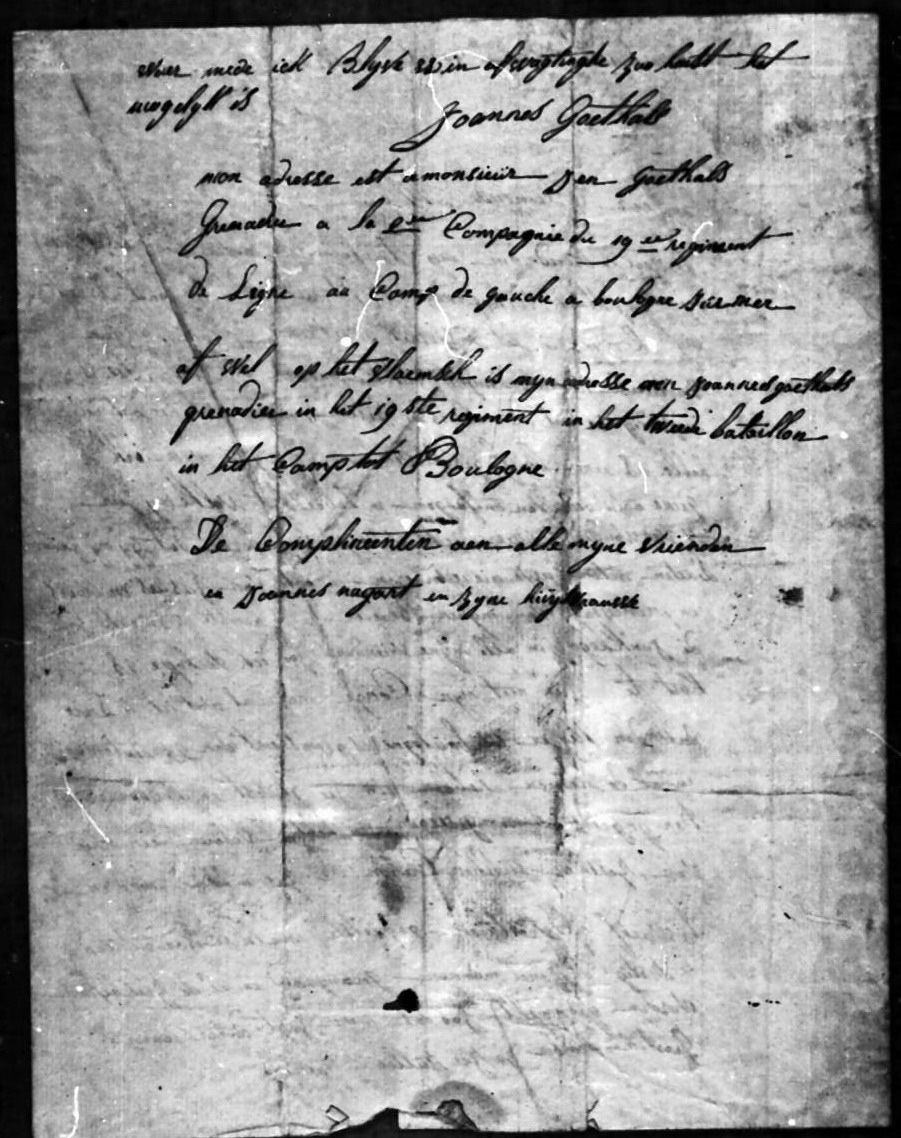 waer mede ick Blyve in afwagtinghe zoo haest het
mogelyk is
Joannes Goethals
mon adresse est a monsieur Jean Goethals
Grenadie a la Compagnie du 19 regiment
de Ligne au Camp de gauche a boulogne Sur mer
of wel op het vlaemsch is myn adresse aen Joannes goethals
grenadier in het 19 ste regiment in het twede bataillon
in het Camp tot Boulogne
De Complimenten aen alle myne vrienden
en Joannes en zyne